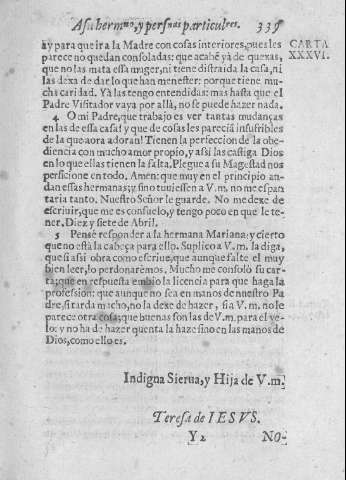 A su hermano, y personas particulares. 339
CARTA
XXXVI.
ay para que ir a la Madre con cosas interiores, pues les
parece no quedan consoladas: que acabe ya de quexas,
que no las mata essa muger, ni tiene distraida la casa, ni
las dexa de dar lo que han menester: porque tiene mu-
cha caridad. Yà las tengo entendidas: mas hasta que el
Padre Visitador vaya por allà, no se puede hazer nada.
4 O mi Padre, que trabajo es ver tantas mudanças
en las de essa casa! y que de cosas les parecia insufribles
de la que aora adoran! Tienen la perfeccion de la obe-
diencia con mucho amor propio, y assi las castiga Dios
en lo que ellas tienen la falta. Plegue a su Magestad nos
perficione en todo, Amen: que muy en el principio an-
dan essas hermanas; y sino tuuiessen a V.m. no me espan-
taria tanto. Nuestro Señor le guarde. No me dexe de
escriuir, que me es consuelo, y tengo poco en que le te-
ner. Diez y siete de Abril.
5 Pensè responder a la hermana Mariana; y cierto
que no està la cabeça para ello. Suplico a V.m. la diga,
que si assi obra como escriue, que aunque falte el muy
bien leer, lo perdonarèmos. Mucho me consolò su car-
ta; que en respuesta embio la licencia para que haga la
profession: que aunque no sea en manos de nuestro Pa
dre, si tarda mucho, no la dexe de hazer, si a V.m. no le
parece otra cosa; que buenas son las de V.m. para el ve-
lo: y no ha de hazer quenta la haze sino en las manos de
Dios, como ello es.
Indigna Sierua, y Hija de V.m.
Teresa de IESVS.
Y2 NO-